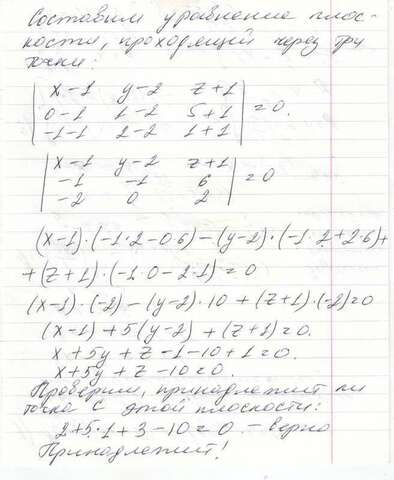 Составим уравнение плос-
кости, проходящей через три
точки:
| x-1 y-2 z+1 |
| 0-1 1-2 5+1 | = 0.
| -1-1 2-2 1+1 |
| x-1 y-2 z+1 |
| -1 -1 6 | = 0
| -2 0 2 |
(x-1)·(-1·2-0·6)-(y-2)·(-1·2+2·6)+
+(z+1)·(-1·0-2·1)=0
(x-1)·(-2)-(y-2)·10+(z+1)·(-2)=0
(x-1)+5(y-2)+(z+1)=0.
x+5y+z-1-10+1=0.
x+5y+z-10=0.
Проверим, принадлежит ли
точка C этой плоскости:
2+5·1+3-10=0 - верно
Принадлежит!